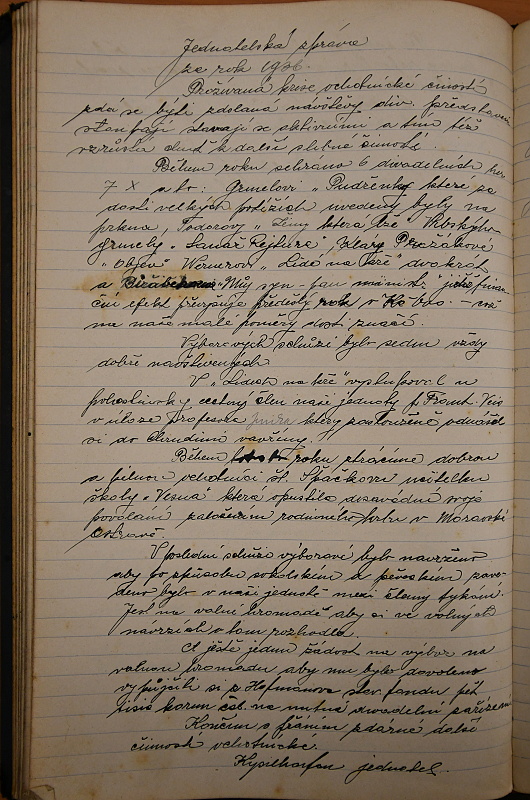 Jednatelská zpráva
za rok 1936.
Prožívaná krise ochotnické činnosti
zdá se býti zdolaná návštěvy div. představení
stoupají stavají se aktivními a tím též
vzrůstá chuť k další slibné činnosti.
Během roku sehráno 6 divadelních her
7 X a to: Grmelovi "Pudřenky které za
dosti velkých potížích uvedeny byly na
prkna, Fodorovy "Ženy která lže" Vrbského
grmely "Lamač Rejhare, Vlasy Prozákové
"Objev" Wernerov "Lidé na kře" dvakrát
a "Můj syn - pan ministr" jichž finan-
ční efekt převyšuje předešlý rok o Kč - což
na naše malé poměry dosti značí.
Výborových schůzí bylo sedm vždy
dobře navštívených
V "Lidech na kře" vystupoval u
pohostinsky čestný člen naší jednoty p. Frant. Veis
v úloze profesora který zaslouženě odnášel
si do Chrudimi vavříny.
Během roku ztrácíme dobrou
a pilnou ochotnici sl. Špačkovu učitelku
školy "Vesna" která opustila dosavadní svoje
povolání založením rodinného krbu v Moravské
Ostravě.
V poslední schůzi výborové bylo navrženo
aby po způsobu sokolském a pěveckém zave-
deno bylo v naší jednotě mezi členy tykání.
Jest na valné hromadě aby si ve volných
návrzích o tom rozhodla.
A ještě jednu žádost na výbor na
valnou hromadu aby mu bylo dovoleno
vypůjčiti si z Hofmanova stav. fondu pět
tisíc korun čsl. na nutné divadelní zařízení
Končím s přáním zdárné další
činnosti ochotnické.
jednatel.